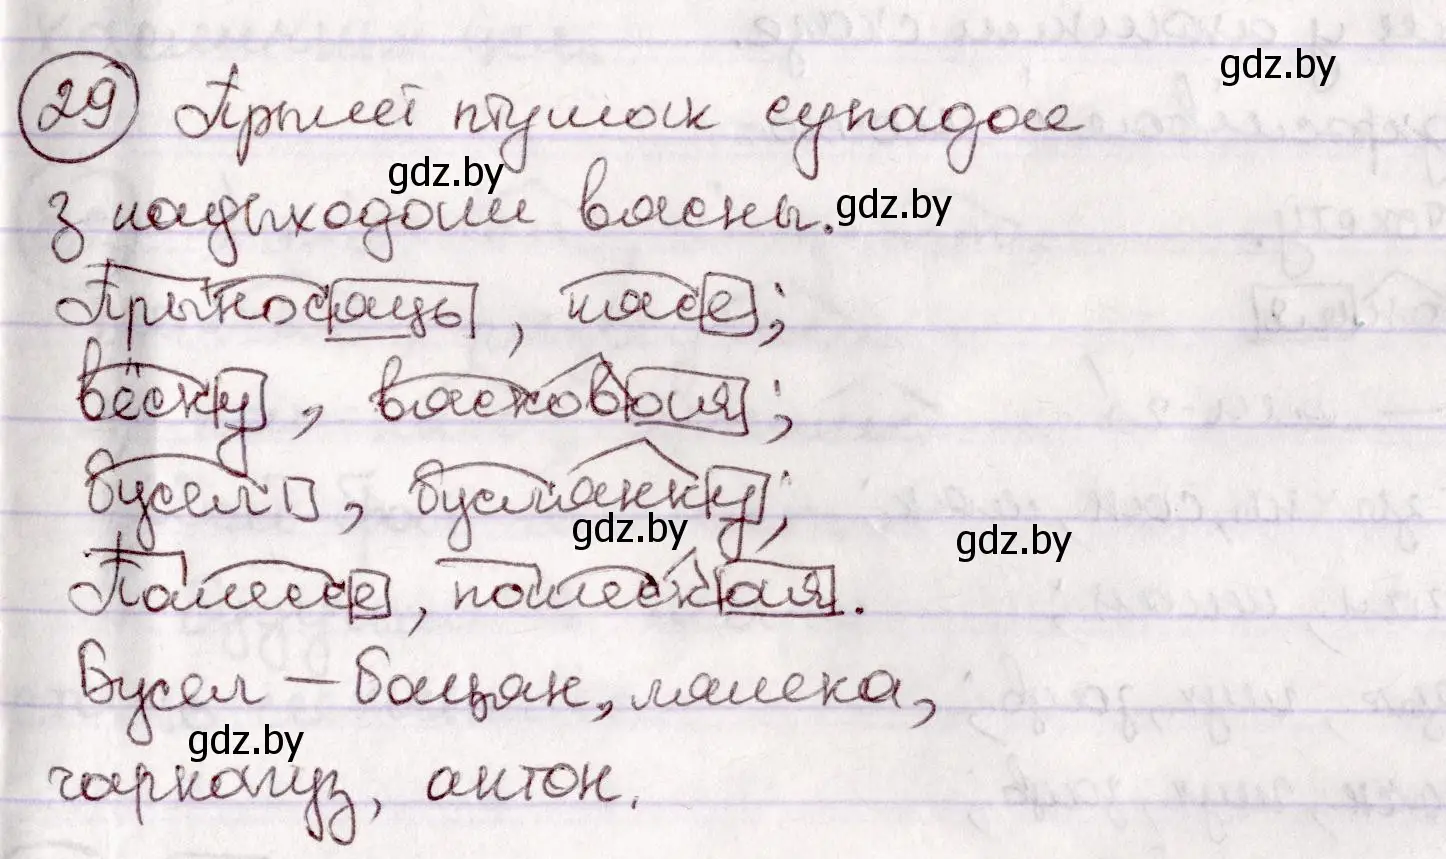 29 Прылёт птушак супадае
з надыходам вясны.
Прыносяць, нясе;
вёску, васковая;
бусел, буслянку;
Палессе, палеская.
Бусел – бацян, малека,
чаркагуз, антон.
gdz.by
gdz.by
gdz.by
gdz.by
gdz.by
gdz.by